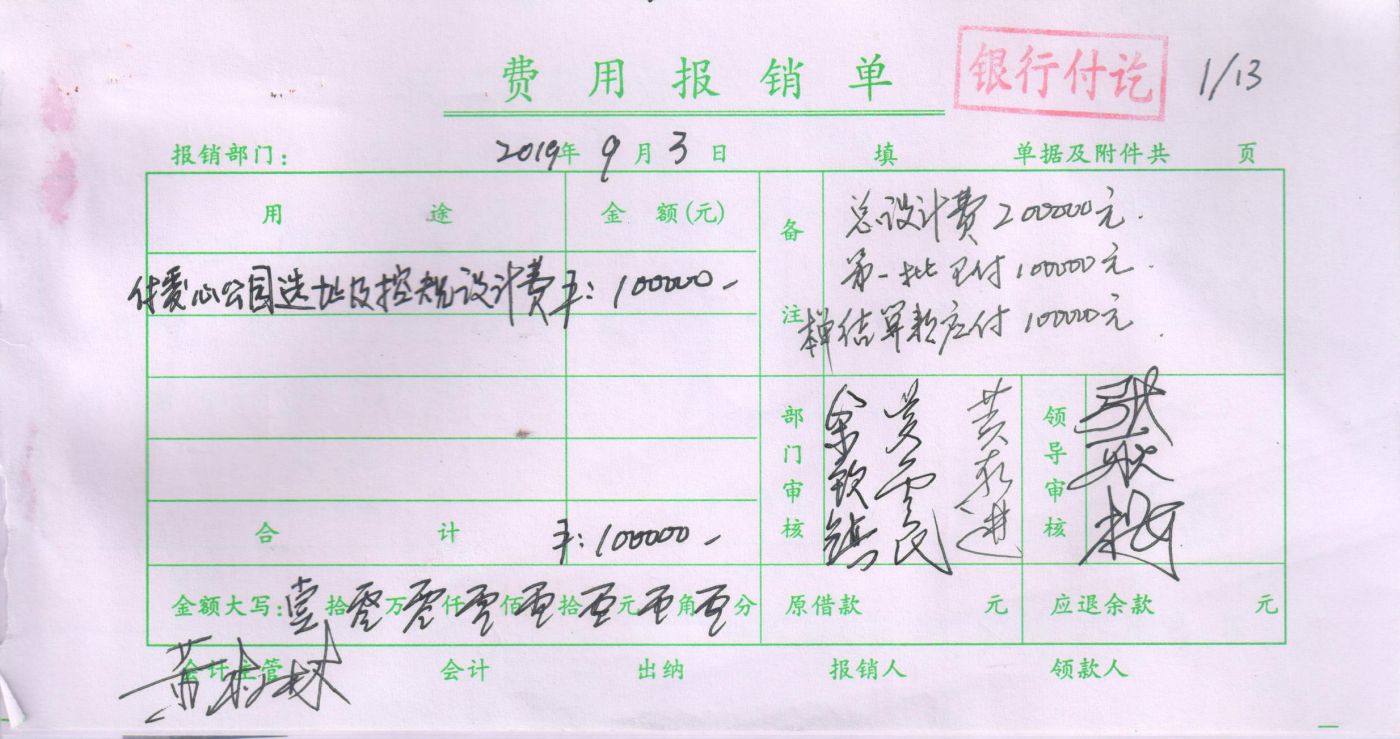 费用报销单
银行付讫
1/13
报销部门: 2019年9月3日 填 单据及附件共 页
用途 金额(元)
付爱心公园选址及控规设计费 100000
合计 100000
备注
总设计费200000元.
第一批已付100000元.
结算款应付10000元
部门审核
余钦镇
黄
领导审核
张
金额大写:壹拾零万零仟零佰零拾零元零角零分 原借款 元 应退余款 元
会计主管 会计 出纳 报销人 领款人